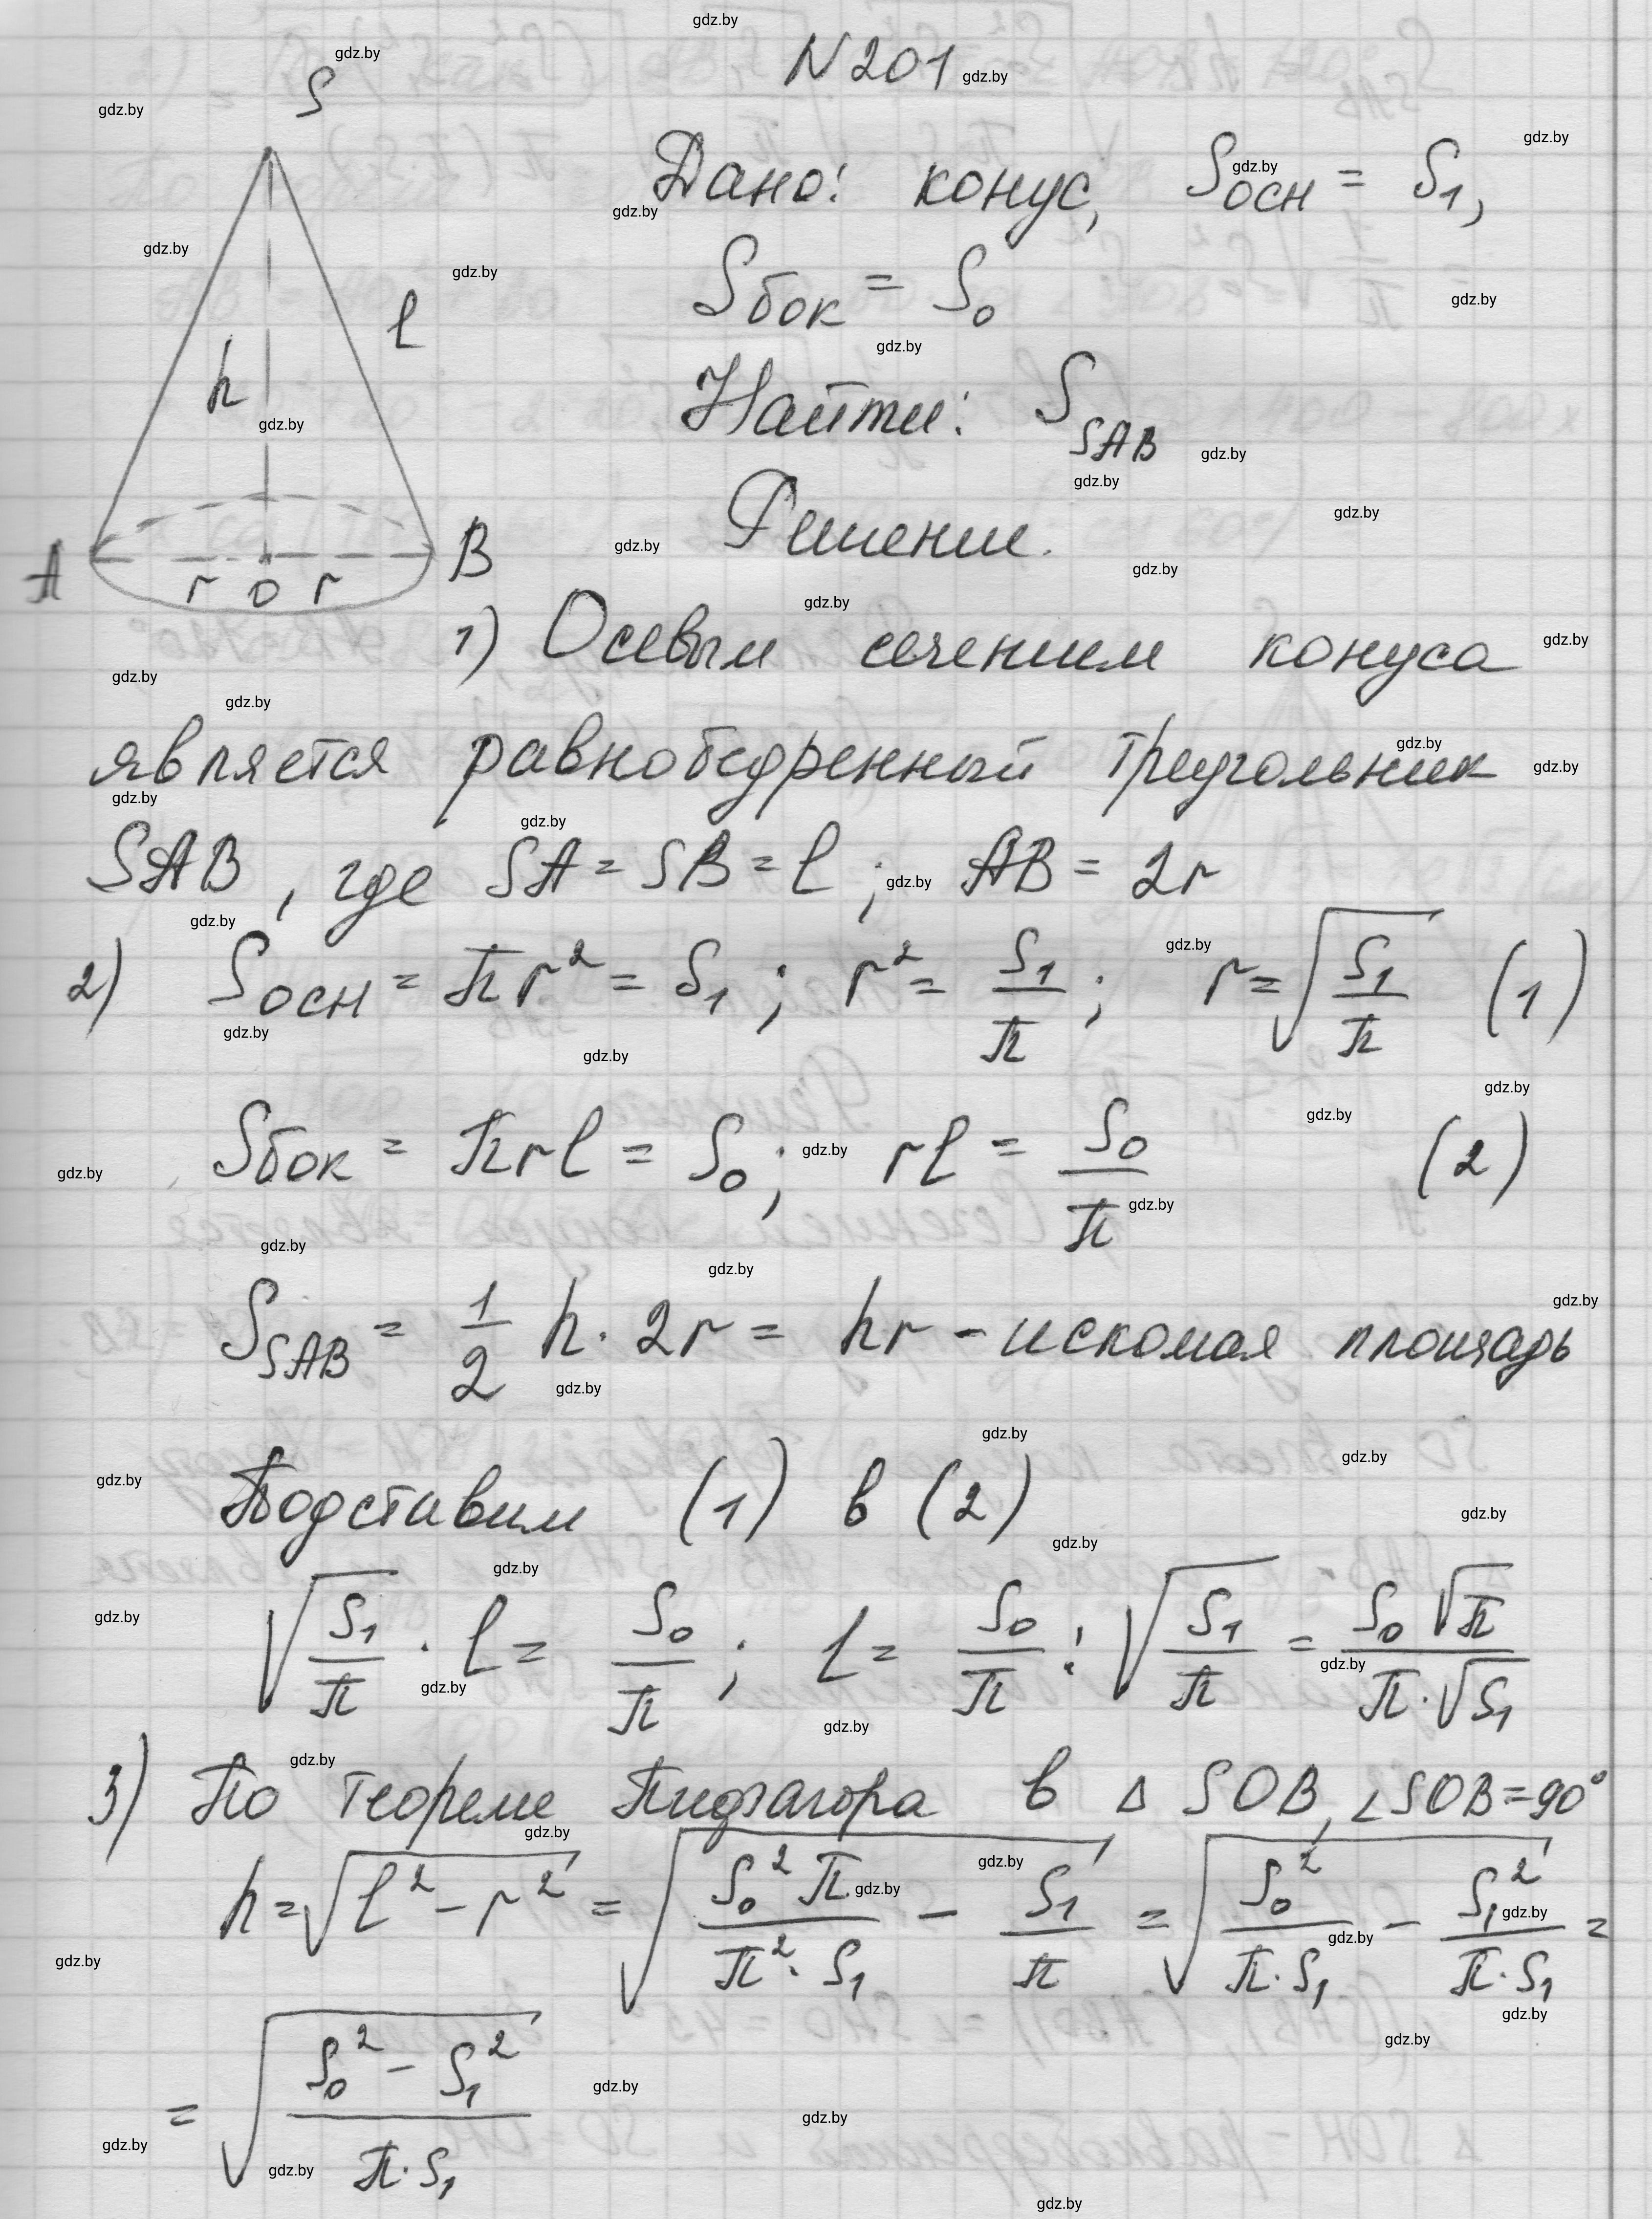 N 201
S
Дано: конус, Sосн = S₁,
Sбок = S₀
l
h
Найти: S_SAB
Решение.
A r O r B
1) Осевым сечением конуса
является равнобедренный треугольник
SAB, где SA = SB = l; AB = 2r
2) Sосн = πr² = S₁; r² = S₁/π; r = √(S₁/π) (1)
Sбок = πrl = S₀; rl = S₀/π (2)
S_SAB = 1/2 h · 2r = hr - искомая площадь
Подставим (1) в (2)
√(S₁/π) · l = S₀/π; l = S₀/π : √(S₁/π) = S₀√π/(π·√S₁)
3) По теореме Пифагора в Δ SOB, ∠SOB = 90°
h = √(l² - r²) = √(S₀²π/(π²·S₁) - S₁/π) = √(S₀²/(π·S₁) - S₁²/(π·S₁)) =
= √((S₀² - S₁²)/(π·S₁))
gdz.by